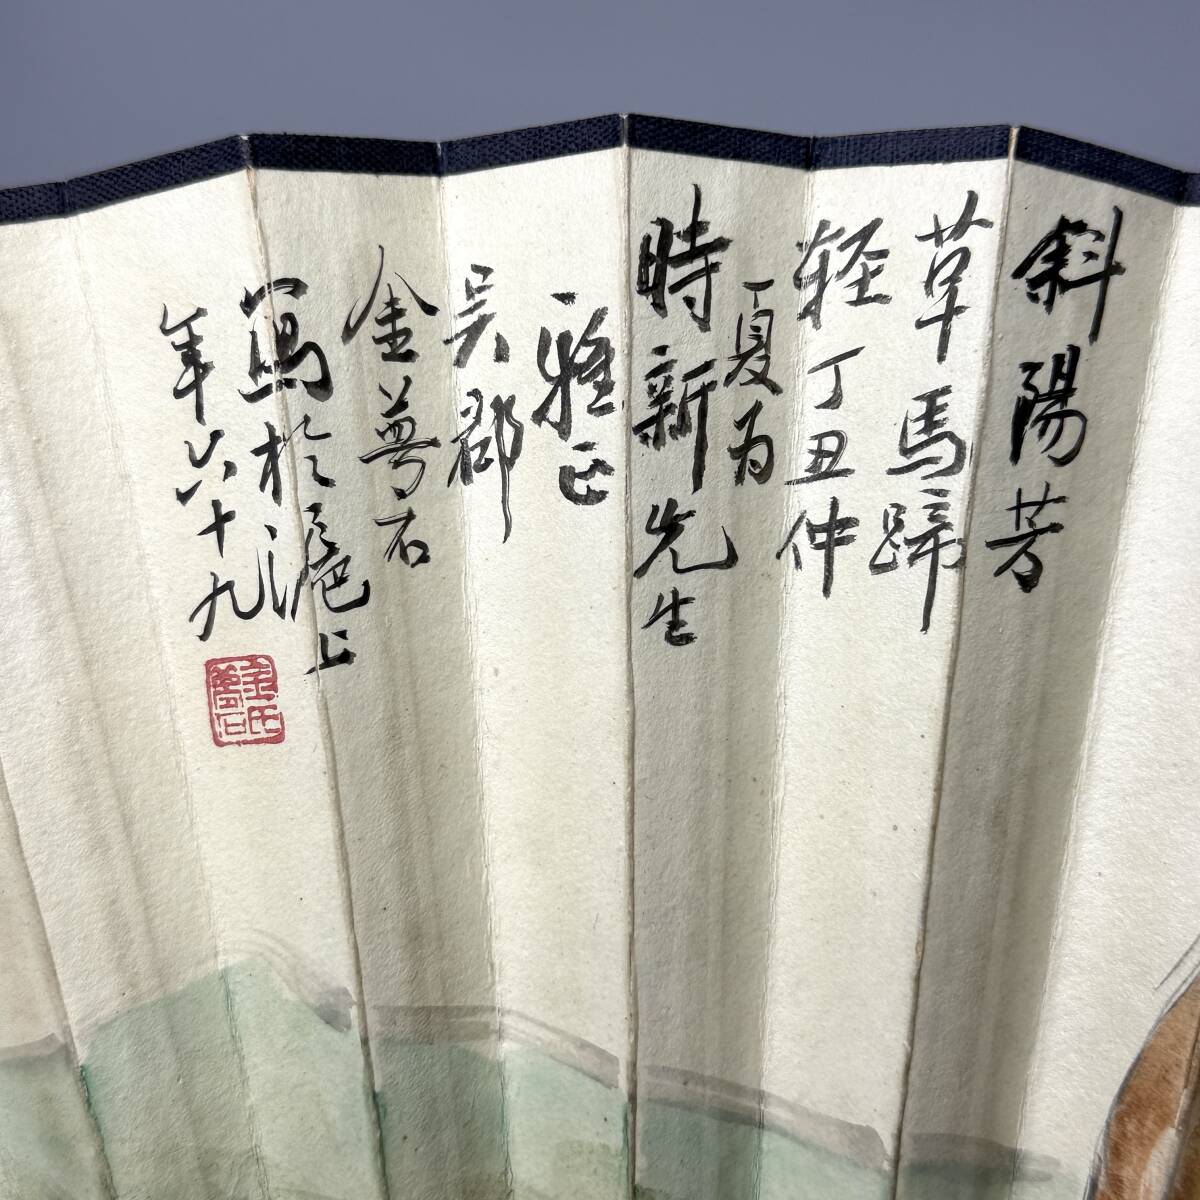 斜陽芳
草馬蹄
軽丁丑仲
夏为
時新先生
雅正
吴郡
金尊石
寫於滬上
年六十九
金氏
尊石